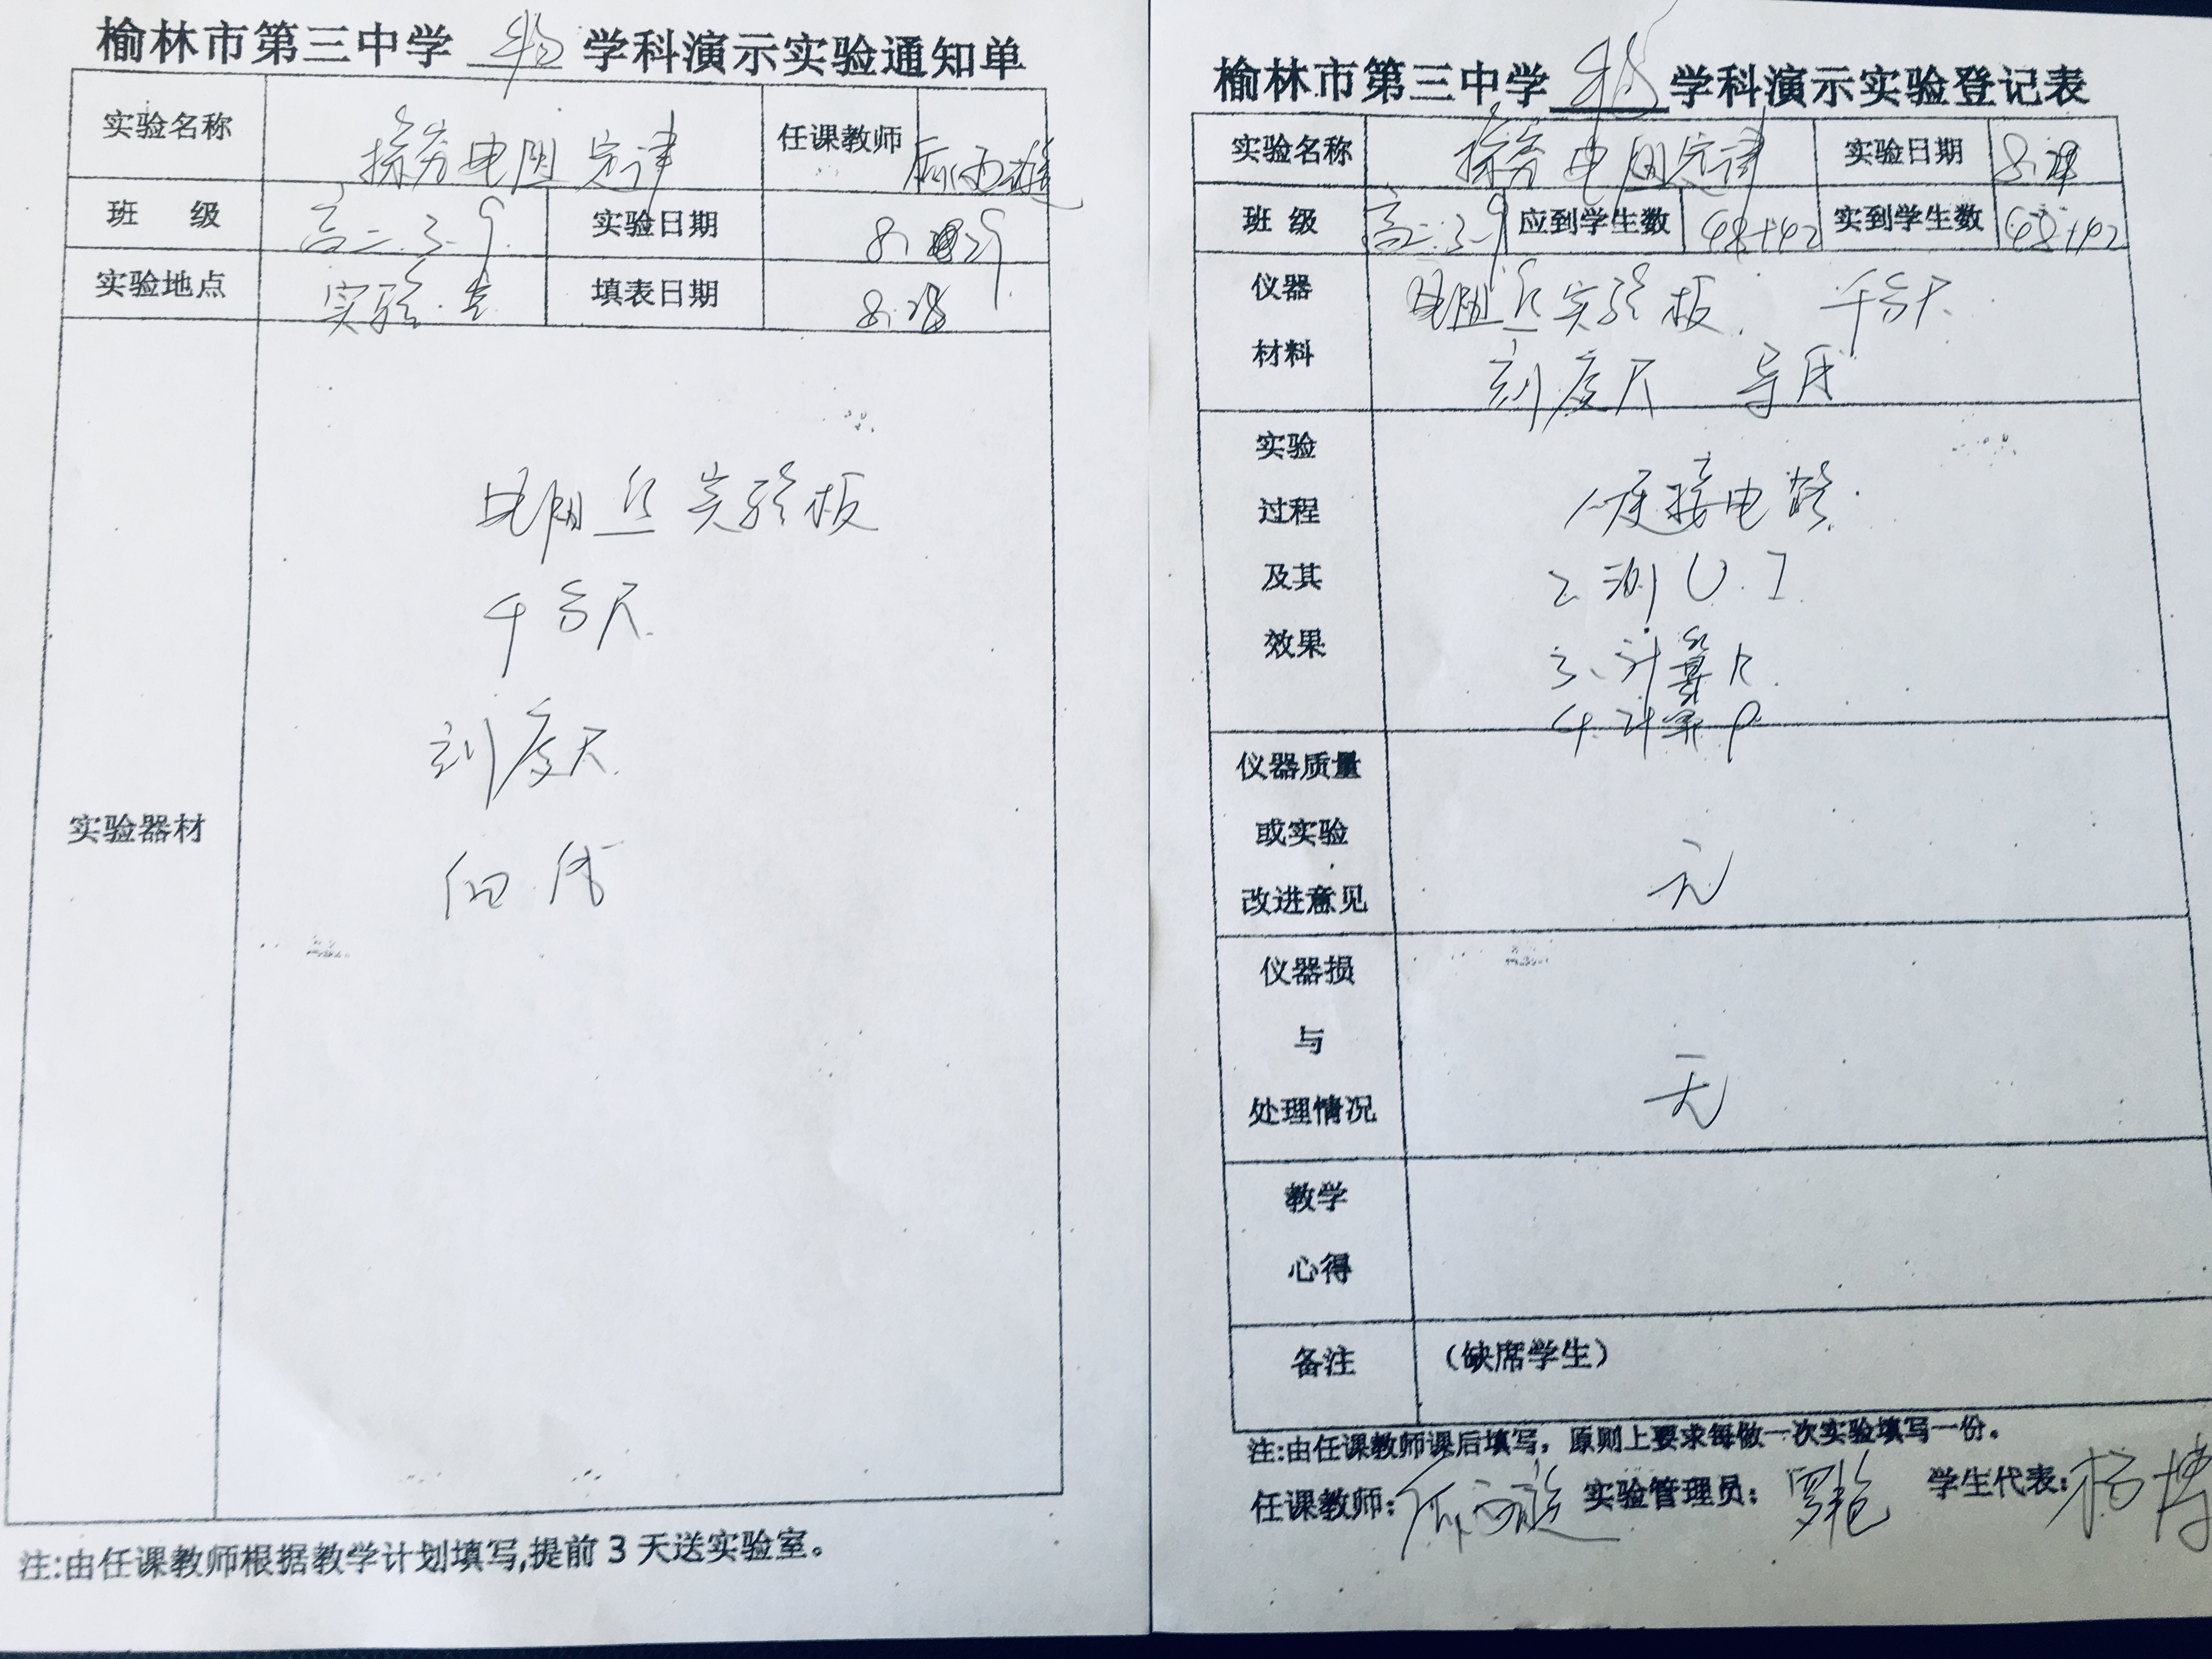 榆林市第三中学 物 学科演示实验通知单
实验名称 探究电阻定律 任课教师
班 级 高二.3.9. 实验日期 8.29
实验地点 实验室 填表日期 8.28
实验器材
电阻丝实验板
千分尺.
刻度尺.
注:由任课教师根据教学计划填写,提前3天送实验室。
榆林市第三中学 物 学科演示实验登记表
实验名称 探究电阻定律 实验日期
班 级 高二.3-9 应到学生数 48+42 实到学生数 48+42
仪器 电阻丝实验板. 千分尺.
材料 刻度尺
实验
过程 1.连接电路.
及其 2 测 U.I
效果 3、计算R.
4.计算ρ
仪器质量
或实验 无
改进意见
仪器损
与 无
处理情况
教学
心得
备注 （缺席学生）
注:由任课教师课后填写，原则上要求每做一次实验填写一份。
任课教师: 实验管理员: 学生代表: 杨博